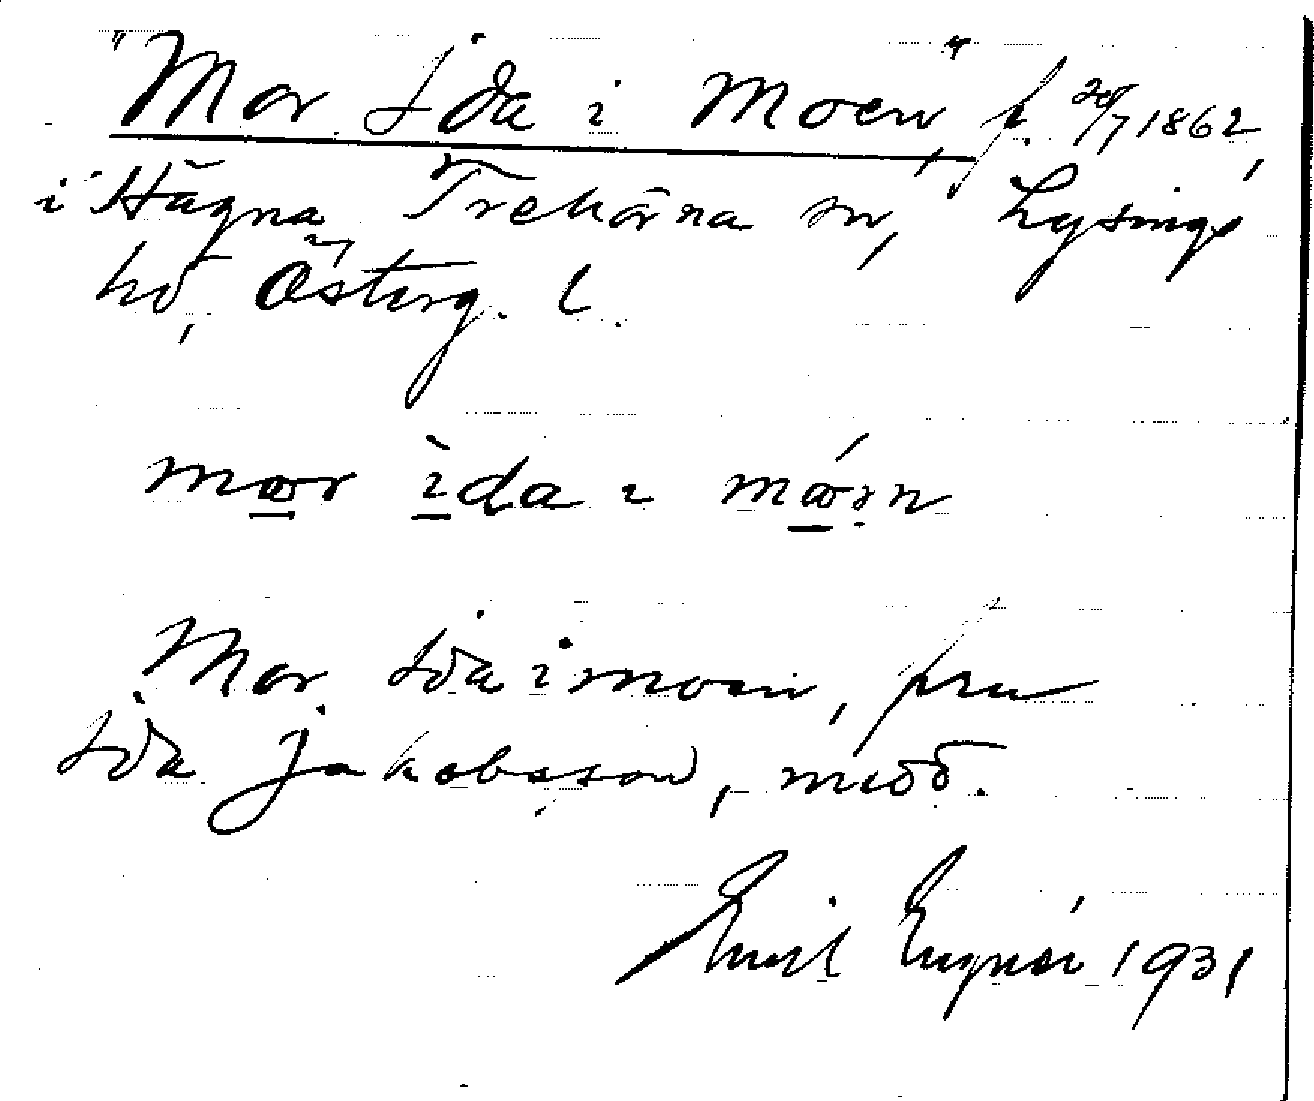 "Mor Ida i Moen", f. 20/7 1862,
i Hägna Trehörna sn, Lysings
hd, Österg. l.
mor ìda i móın
Mor Ida i moen, fru
Ida Jakobsson, medd.
Emil Engnér 1931